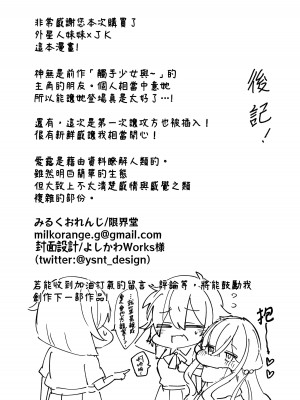 後記!
非常感謝您本次購買了
外星人妹妹×JK
這本漫畫!
神無是前作「觸手少女與~」的
主角的朋友。個人相當中意她
所以能讓她登場真是太好了…!
還有，這次是第一次讓攻方也被插入!
很有新鮮感讓我相當開心!
愛露是藉由資料瞭解人類的。
雖然明白簡單的生態
但大致上不太清楚感情與感覺之類
複雜的部份。
みるくおれんじ/限界堂
milkorange.g@gmail.com
封面設計/よしかわWorks様
(twitter:@ysnt_design)
若能收到加油打氣的留言、評論等，將能鼓勵我
創作下一部作品!
抱—